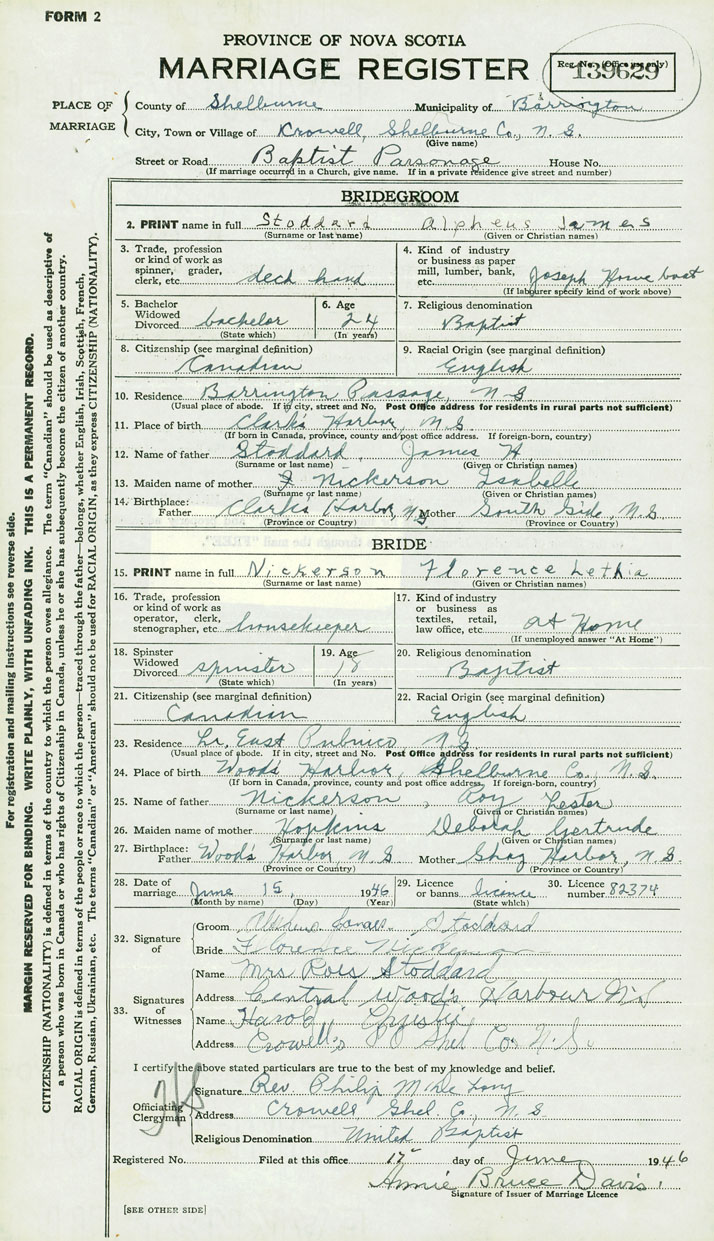 FORM 2
PROVINCE OF NOVA SCOTIA
MARRIAGE REGISTER
Reg. No. (Office use only)
139629
PLACE OF MARRIAGE
County of Shelburne Municipality of Barrington
City, Town or Village of Crowell, Shelburne Co., N. S.
(Give name)
Street or Road Baptist Parsonage House No.
(If marriage occurred in a Church, give name. If in a private residence give street and number)
BRIDEGROOM
2. PRINT name in full Stoddard Alpheus James
(Surname or last name) (Given or Christian names)
3. Trade, profession or kind of work as spinner, grader, clerk, etc. deck hand
4. Kind of industry or business as paper mill, lumber, bank, etc. Joseph Howe boat
(If labourer specify kind of work above)
5. Bachelor Widowed Divorced bachelor
(State which)
6. Age 24
(In years)
7. Religious denomination
Baptist
8. Citizenship (see marginal definition)
Canadian
9. Racial Origin (see marginal definition)
English
10. Residence Barrington Passage, N S
(Usual place of abode. If in city, street and No. Post Office address for residents in rural parts not sufficient)
11. Place of birth Clark's Harbor, N. S
(If born in Canada, province, county and post office address. If foreign-born, country)
12. Name of father Stoddard, James H
(Surname or last name) (Given or Christian names)
13. Maiden name of mother Nickerson Isabelle
(Surname or last name) (Given or Christian names)
14. Birthplace: Father Clark's Harbor, N S Mother South Side, N. S
(Province or Country) (Province or Country)
BRIDE
15. PRINT name in full Nickerson Florence Lethia
(Surname or last name) (Given or Christian names)
16. Trade, profession or kind of work as operator, clerk, stenographer, etc. housekeeper
17. Kind of industry or business as textiles, retail, law office, etc. at Home
(If unemployed answer "At Home")
18. Spinster Widowed Divorced spinster
(State which)
19. Age 18
(In years)
20. Religious denomination
Baptist
21. Citizenship (see marginal definition)
Canadian
22. Racial Origin (see marginal definition)
English
23. Residence Lr. East Pubnico N S
(Usual place of abode. If in city, street and No. Post Office address for residents in rural parts not sufficient)
24. Place of birth Woods Harbor, Shelburne Co., N. S.
(If born in Canada, province, county and post office address. If foreign-born, country)
25. Name of father Nickerson, Roy Lester
(Surname or last name) (Given or Christian names)
26. Maiden name of mother Hopkins Deborah Gertrude
(Surname or last name) (Given or Christian names)
27. Birthplace: Father Wood's Harbor, N S Mother Shag Harbor, N. S.
(Province or Country) (Province or Country)
28. Date of marriage June 15, 1946
(Month by name) (Day) (Year)
29. Licence or banns licence
(State which)
30. Licence number 82374
32. Signature of
Groom James Stoddard
Bride Florence Nickerson
33. Signatures of Witnesses
Name Mrs Rois Stoddard
Address Central Wood's Harbour N.S
Name Harold
Address Crowell's P O Shel Co. N. S.
I certify the above stated particulars are true to the best of my knowledge and belief.
Officiating Clergyman
Signature Rev. Philip M De Long
Address Crowell Shel. Co., N. S
Religious Denomination United Baptist
Registered No. Filed at this office 17 day of June 1946
Annie Bruce Davis
Signature of Issuer of Marriage Licence
[SEE OTHER SIDE]
For registration and mailing instructions see reverse side.
MARGIN RESERVED FOR BINDING. WRITE PLAINLY, WITH UNFADING INK. THIS IS A PERMANENT RECORD.
CITIZENSHIP (NATIONALITY) is defined in terms of the country to which the person owes allegiance. The term "Canadian" should be used as descriptive of
a person who was born in Canada or who has rights of Citizenship in Canada, unless he or she has subsequently become the citizen of another country.
RACIAL ORIGIN is defined in terms of the people or race to which the person—traced through the father—belongs, whether English, Irish, Scottish, French,
German, Russian, Ukrainian, etc. The terms "Canadian" or "American" should not be used for RACIAL ORIGIN, as they express CITIZENSHIP (NATIONALITY).